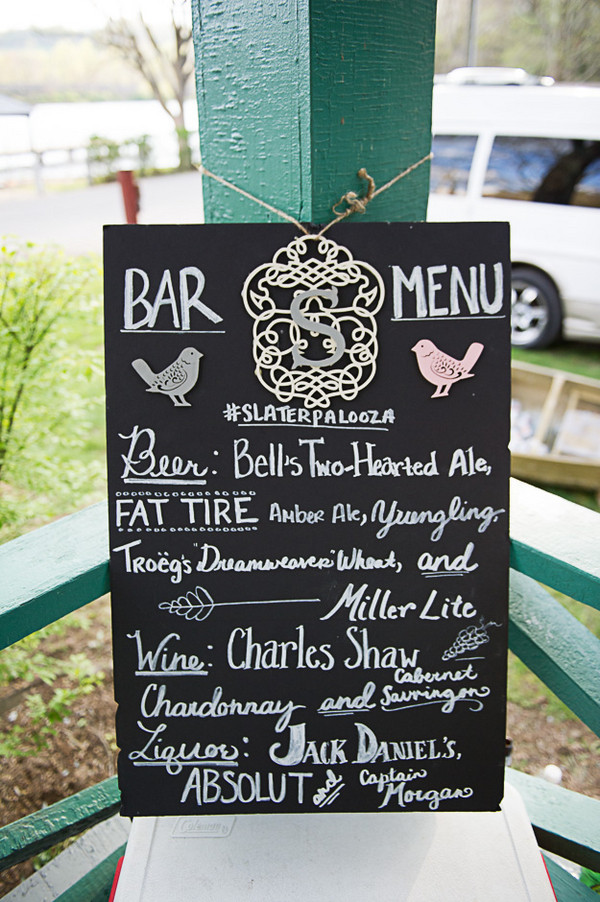 BAR MENU
S
#SLATERPALOOZA
Beer: Bell's Two-Hearted Ale,
FAT TIRE Amber Ale, Yuengling,
Troëg's "Dreamweaver" Wheat, and
Miller Lite
Wine: Charles Shaw
Chardonnay and Cabernet
Sauvringon
Liquor: JACK DANIEL'S,
ABSOLUT and Captain
Morgan
Coleman